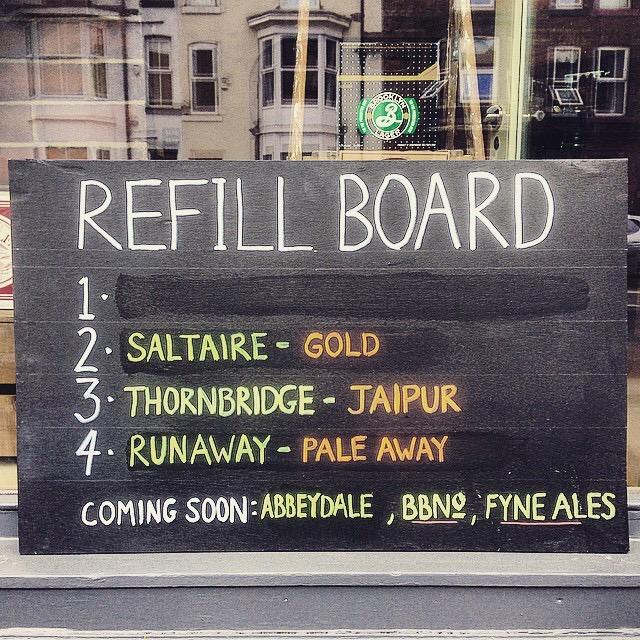 BROOKLYN
B
LAGER
REFILL BOARD
1.
2. SALTAIRE - GOLD
3. THORNBRIDGE - JAIPUR
4. RUNAWAY - PALE AWAY
COMING SOON: ABBEYDALE, BBNº, FYNE ALES